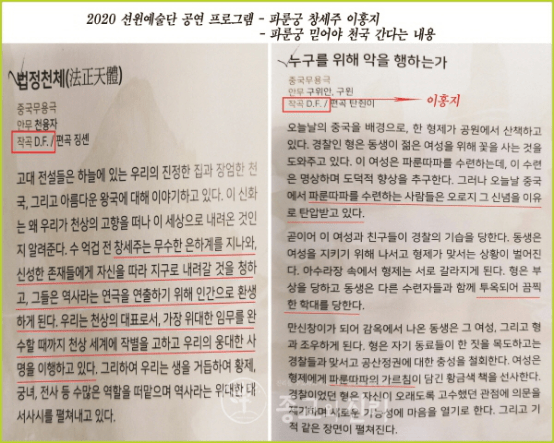 2020 션윈예술단 공연 프로그램 - 파룬궁 창세주 이홍지
- 파룬궁 믿어야 천국 간다는 내용
법정천체(法正天體)
중국무용극
안무 천융자
작곡 D.F. / 편곡 징셴
고대 전설들은 하늘에 있는 우리의 진정한 집과 장엄한 천
국, 그리고 아름다운 왕국에 대해 이야기하고 있다. 이 신화
는 왜 우리가 천상의 고향을 떠나 이 세상으로 내려온 것인
지 알려준다. 수 억겁 전 창세주는 무수한 은하계를 지나와,
신성한 존재들에게 자신을 따라 지구로 내려갈 것을 청하
고, 그들은 역사라는 연극을 연출하기 위해 인간으로 환생
하게 된다. 우리는 천상의 대표로서, 가장 위대한 임무를 완
수할 때까지 천상 세계에 작별을 고하고 우리의 웅대한 사
명을 이행하고 있다. 그리하여 우리는 생을 거듭하여 황제,
궁녀, 전사 등 수많은 역할을 떠맡으며 역사라는 위대한 대
서사시를 펼쳐내고 있다.
누구를 위해 악을 행하는가
중국무용극
안무 구위안, 구윈
작곡 D.F. / 편곡 탄췬이
이홍지
오늘날의 중국을 배경으로, 한 형제가 공원에서 산책하고
있다. 경찰인 형은 동생이 젊은 여성을 위해 꽃을 사는 것을
도와주고 있다. 이 여성은 파룬따파를 수련하는데, 이 수련
은 명상하며 도덕적 향상을 추구한다. 그러나 오늘날 중국
에서 파룬따파를 수련하는 사람들은 오로지 그 신념을 이유
로 탄압받고 있다.
곧이어 이 여성과 친구들이 경찰의 기습을 당한다. 동생은
여성을 지키기 위해 나서고 형제가 맞서는 상황이 벌어진
다. 아수라장 속에서 형제는 서로 갈라지게 된다. 형은 부
상을 당하고 동생은 다른 수련자들과 함께 투옥되어 끔찍
한 학대를 당한다.
만신창이가 되어 감옥에서 나온 동생은 그 여성, 그리고 형
과 조우하게 된다. 형은 자기 동료들이 한 짓을 목도하고는
경찰들과 맞서고 공산정권에 대한 충성을 철회한다. 여성은
형제에게 파룬따파의 가르침이 담긴 황금색 책을 선사한다.
경찰이었던 형은 자신이 오래도록 고수했던 관점에 의문을
제기하며 새로운 가능성에 마음을 열기로 한다. 그리고 기
적 같은 장면이 펼쳐진다.